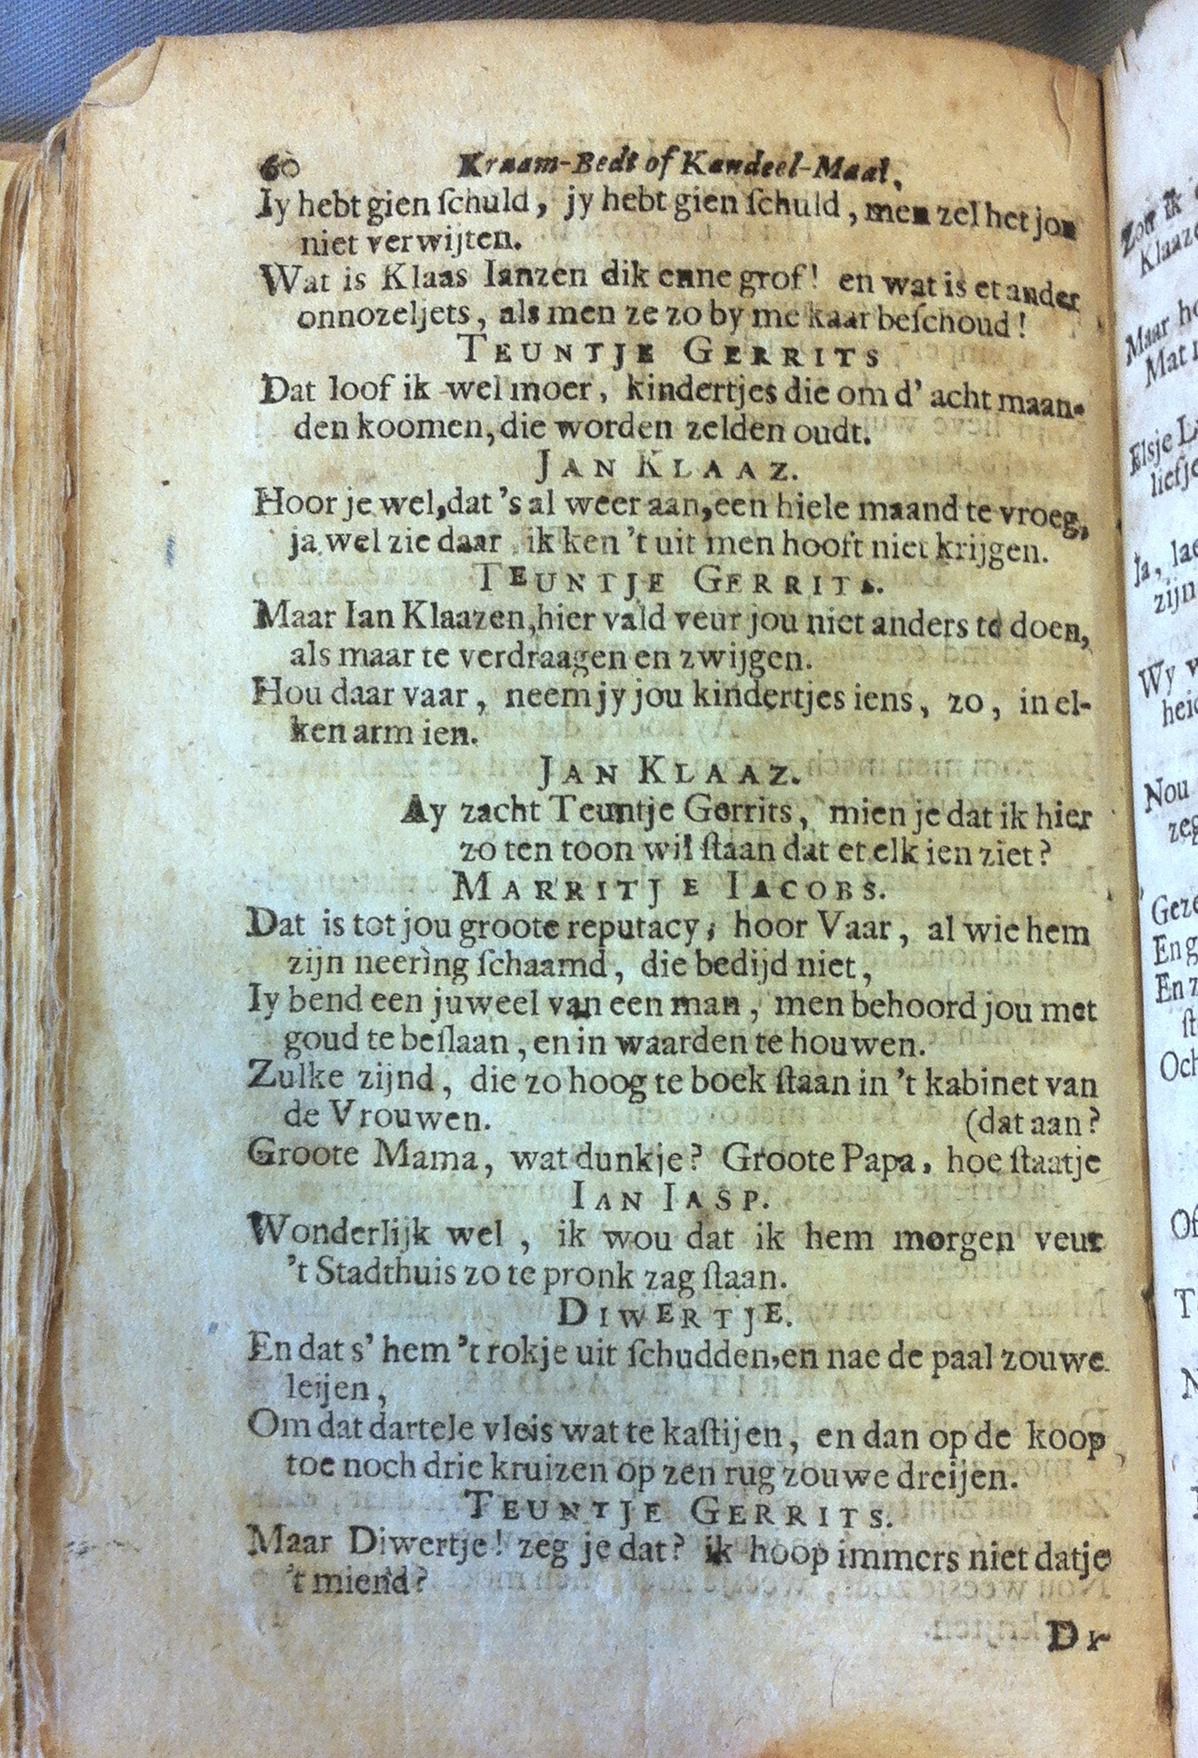 60 Kraam-Bedt of Kandeel-Maal,
Iy hebt gien ſchuld, jy hebt gien ſchuld, men zel het jou
niet verwijten.
Wat is Klaas Ianzen dik enne grof! en wat is et ander
onnozeljets, als men ze zo by me kaar beſchoud!
TEUNTJE GERRITS
Dat loof ik wel moer, kindertjes die om d' acht maan-
den koomen, die worden zelden oudt.
JAN KLAAZ.
Hoor je wel, dat 's al weer aan, een hiele maand te vroeg,
ja wel zie daar ik ken 't uit men hooft niet krijgen.
TEUNTJE GERRITS.
Maar Ian Klaazen, hier vald veur jou niet anders te doen,
als maar te verdraagen en zwijgen.
Hou daar vaar, neem jy jou kindertjes iens, zo, in el-
ken arm ien.
JAN KLAAZ.
Ay zacht Teuntje Gerrits, mien je dat ik hier
zo ten toon wil ſtaan dat et elk ien ziet?
MARRITJE IACOBS.
Dat is tot jou groote reputacy, hoor Vaar, al wie hem
zijn neering ſchaamd, die bedijd niet,
Iy bend een juweel van een man, men behoord jou met
goud te beſlaan, en in waarden te houwen.
Zulke zijnd, die zo hoog te boek ſtaan in 't kabinet van
de Vrouwen. (dat aan?
Groote Mama, wat dunkje? Groote Papa, hoe ſtaatje
IAN IASP.
Wonderlijk wel, ik wou dat ik hem morgen veur
't Stadthuis zo te pronk zag ſtaan.
DIWERTJE.
En dat s' hem 't rokje uit ſchudden, en nae de paal zouwe
leijen,
Om dat dartele vleis wat te kaſtijen, en dan op de koop
toe noch drie kruizen op zen rug zouwe dreijen.
TEUNTJE GERRITS.
Maar Diwertje! zeg je dat? ik hoop immers niet datje
't miend?
DI-
Zou ik
Klaaze
Maar
Mat
Elsje
liefje
Ia,
zijn
Wy
heid
Nou
zeg
Geze
En g
En z
ſt
Och
Of
T
N